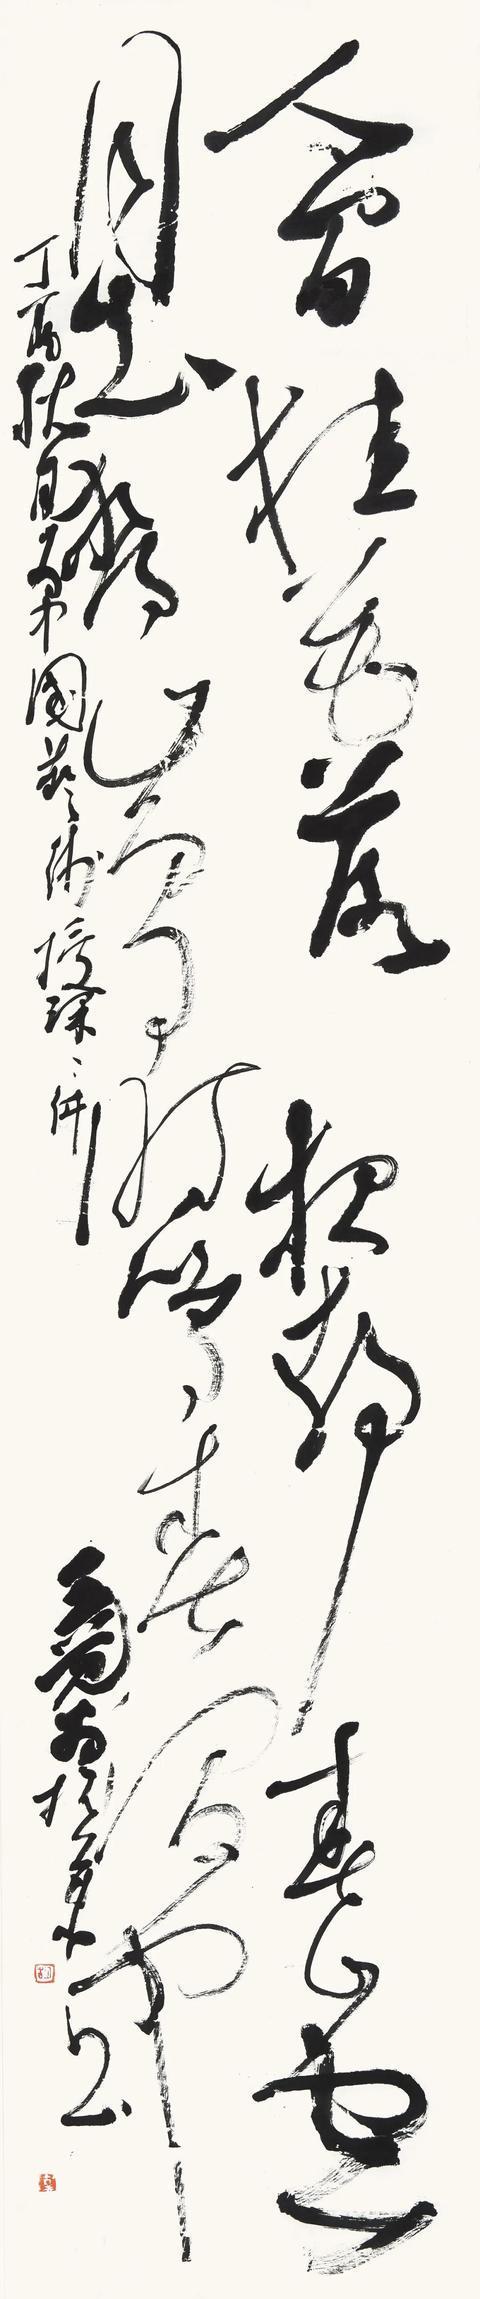 人閒桂花落夜靜春山空
月出驚山鳥時鳴春澗中
丁酉秋月國藝術授課
抗美書